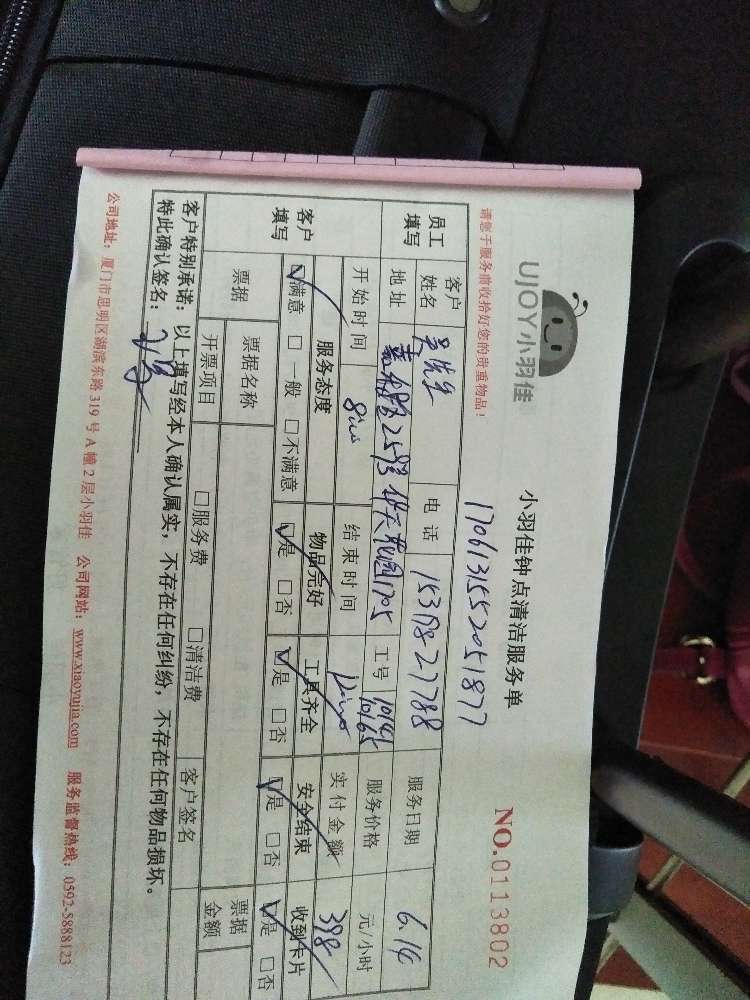 UJOY小羽佳
小羽佳钟点清洁服务单
NO.0113802
请您于服务前收拾好您的贵重物品！
1706131552051877
员工填写
客户姓名
吴先生
电话
服务日期
6.14
地址
1705
工号
服务价格
元/小时
开始时间
结束时间
实付金额
398
客户填写
服务态度
物品完好
工具齐全
安全结束
收到卡片
☑满意 □一般 □不满意
☑是 □否
☑是 □否
☑是 □否
☑是 □否
票据
票据名称
客户签名
票据金额
开票项目
□服务费
□清洁费
客户特别承诺：以上填写经本人确认属实，不存在任何纠纷，不存在任何物品损坏。
特此确认签名：
公司地址：厦门市思明区湖滨东路319号A幢2层小羽佳 公司网站：www.xiaoyujia.com 服务监督热线：0592-5888123